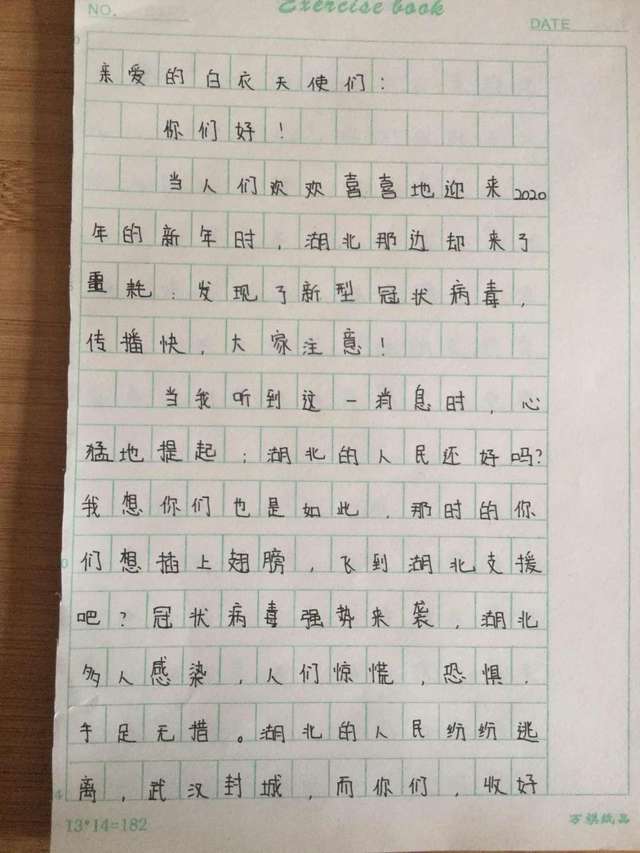 NO.
Exercise book
DATE
亲爱的白衣天使们：
你们好！
当人们欢欢喜喜地迎来2020
年的新年时，湖北那边却来了
重耗：发现了新型冠状病毒，
传播快，大家注意！
当我听到这一消息时，心
猛地提起：湖北的人民还好吗？
我想你们也是如此，那时的你
们想插上翅膀，飞到湖北支援
吧？冠状病毒强势来袭，湖北
多人感染，人们惊慌，恐惧，
手足无措。湖北的人民纷纷逃
离，武汉封城，而你们，收好
13*14=182
万祺纸品